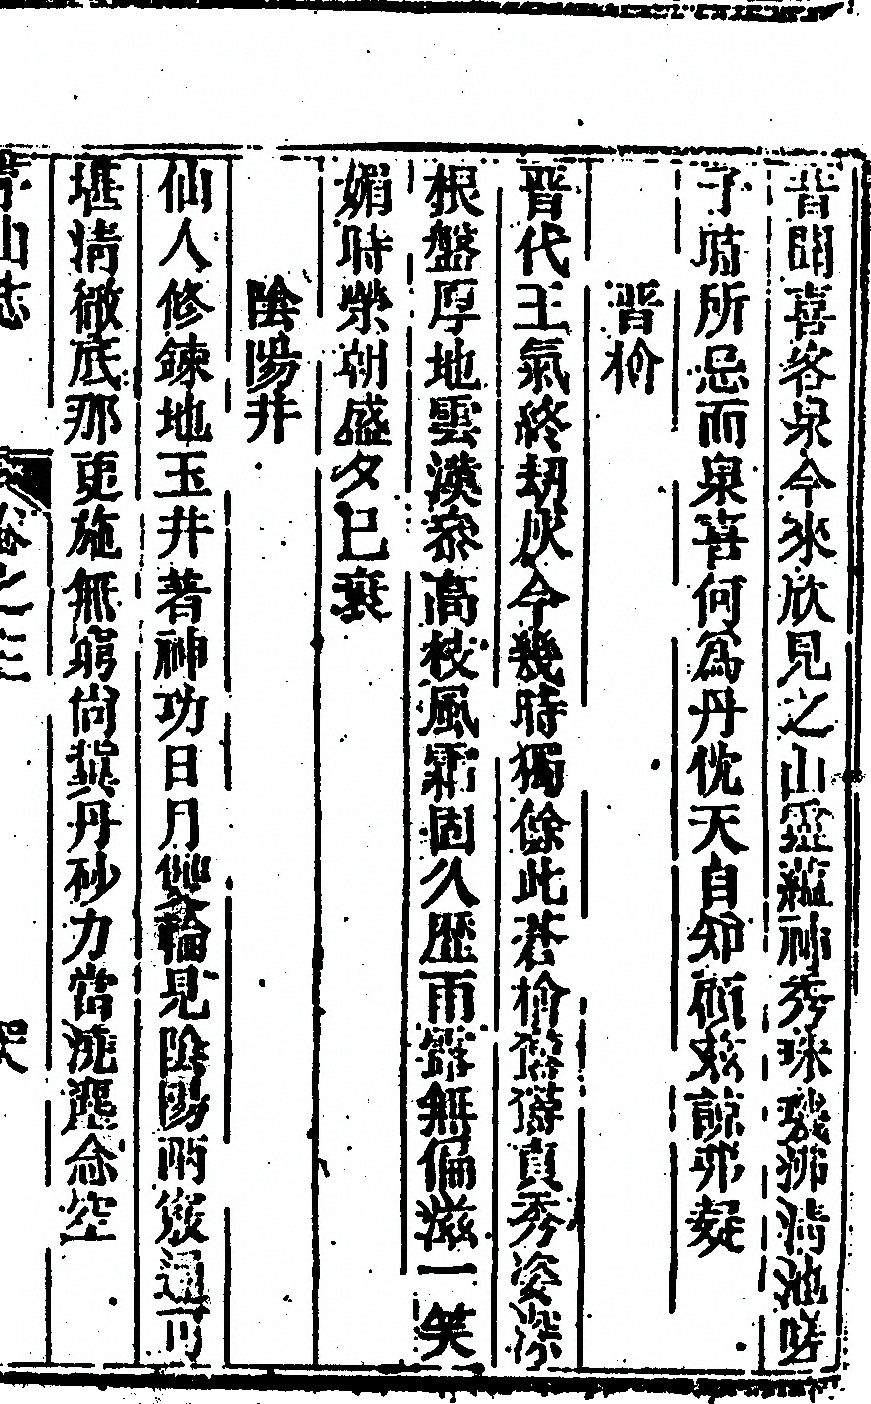 昔聞喜客泉今來欣見之山靈蘊神秀珠璣沸清池嗟
予時所忌而泉喜何爲丹忱天自知顧茲諒那疑
晋檜
晋代王氣終劫灰今幾時獨餘此蒼檜貞秀姿深
根盤厚地雲漢參高枝風霜固久歷雨露無偏滋一笑
媚時榮朝盛夕已衰
陰陽井
仙人修鍊地玉井著神功日月雙輪見陰陽兩竅通可
堪清徹底那更施無窮尚冀丹砂力當澆塵念空
山志 卷之三